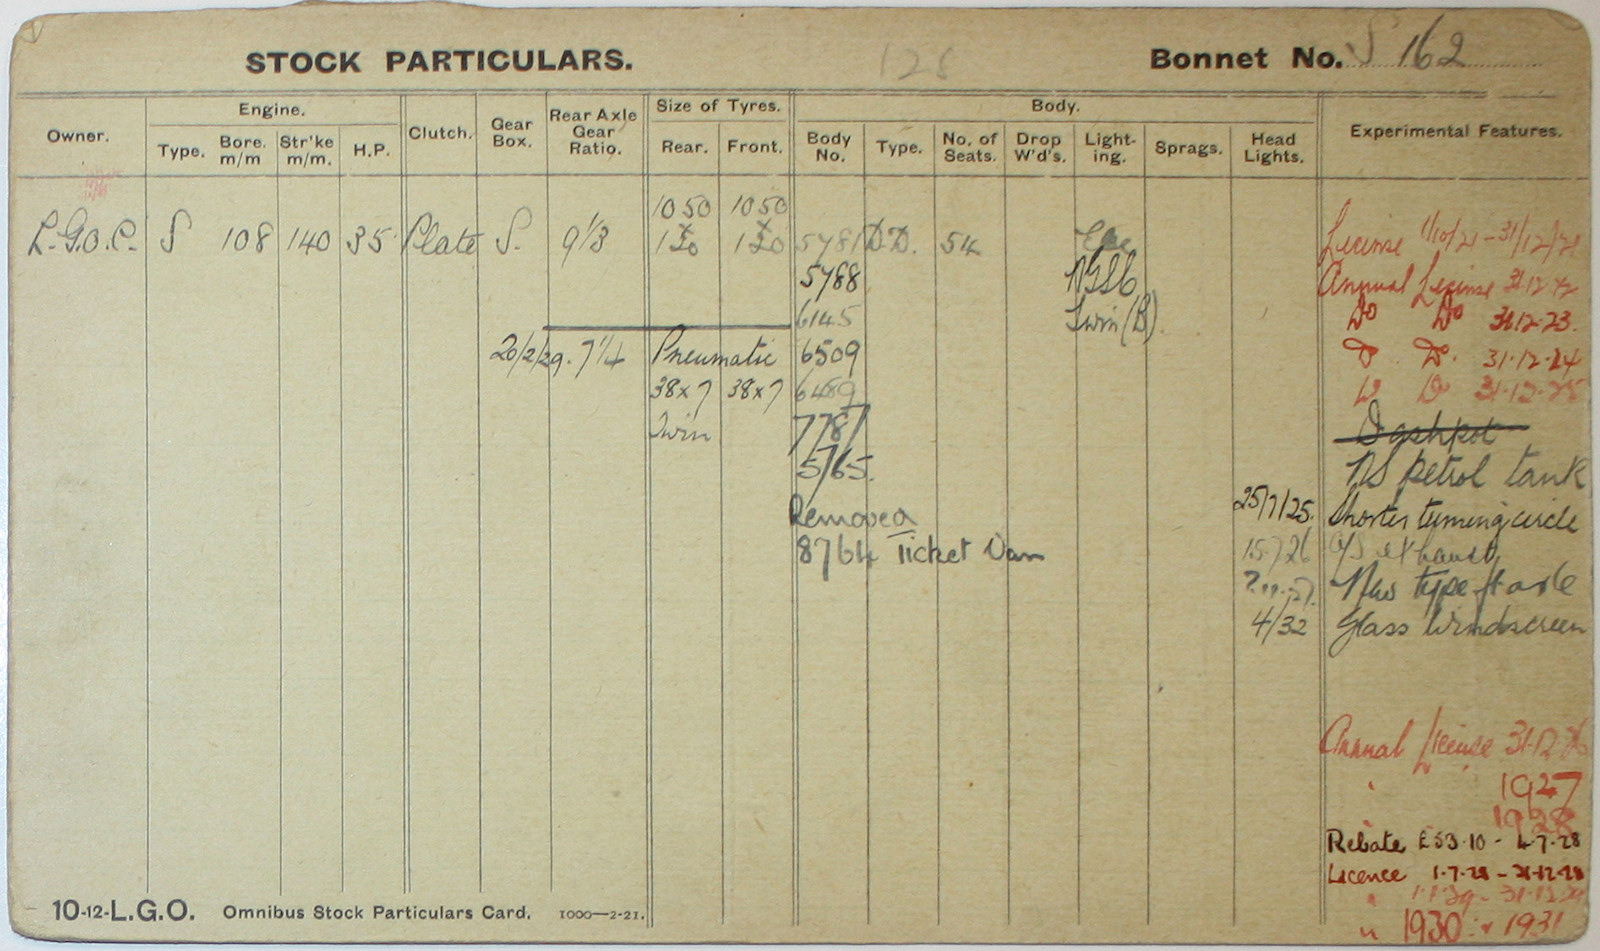 STOCK PARTICULARS. Bonnet No. S 162
Owner. Engine. Clutch. Gear Box. Rear Axle Gear Ratio. Size of Tyres. Body. Experimental Features.
Type. Bore. m/m Str'ke m/m. H.P. Rear. Front. Body No. Type. No. of Seats. Drop W'd's. Light-ing. Sprags. Head Lights.
1050 1050
L.G.O.C. S 108 140 35 Plate S. 9 1/3 x 120 x 120 5781 D.D. 54 License 1/10/21 - 31/12/21
5788 NGSb Annual License 31-12-22
6145 Twin (B) Do Do 31-12-23.
20/2/29. 7 1/4 Pneumatic 6509 Do Do. 31-12-24
38x7 38x7 6489 Do Do 31-12-25
Twin 7787 Dashpot
5765. NS petrol tank
Removed 25/7/25. Shorter turning circle
8764 Ticket Van 15.7.26 O/S exhaust
New type ft axle
4/32 Glass Windscreen
Annual License 31-12-26
" 1927
1928
Rebate £53-10 - 4-7-28
Licence 1-7-28 - 31-12-28
" 1-1-29 - 31-12-29
" 1930 : " 1931
10-12-L.G.O. Omnibus Stock Particulars Card. 1000—2-21.